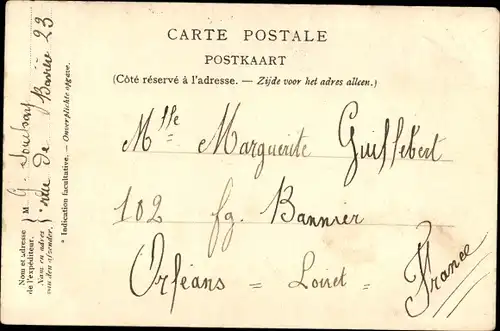 CARTE POSTALE
POSTKAART
(Côté réservé à l'adresse. — Zijde voor het adres alleen.)
Mlle Marguerite Guillebert
102 fg. Bannier
Orléans = Loiret =
France
Nom et adresse
de l'expéditeur.
Nam en adres
van den afzender.
M G.
rue de Bavière 23
* Indication facultative. — Onverplichte opgave.